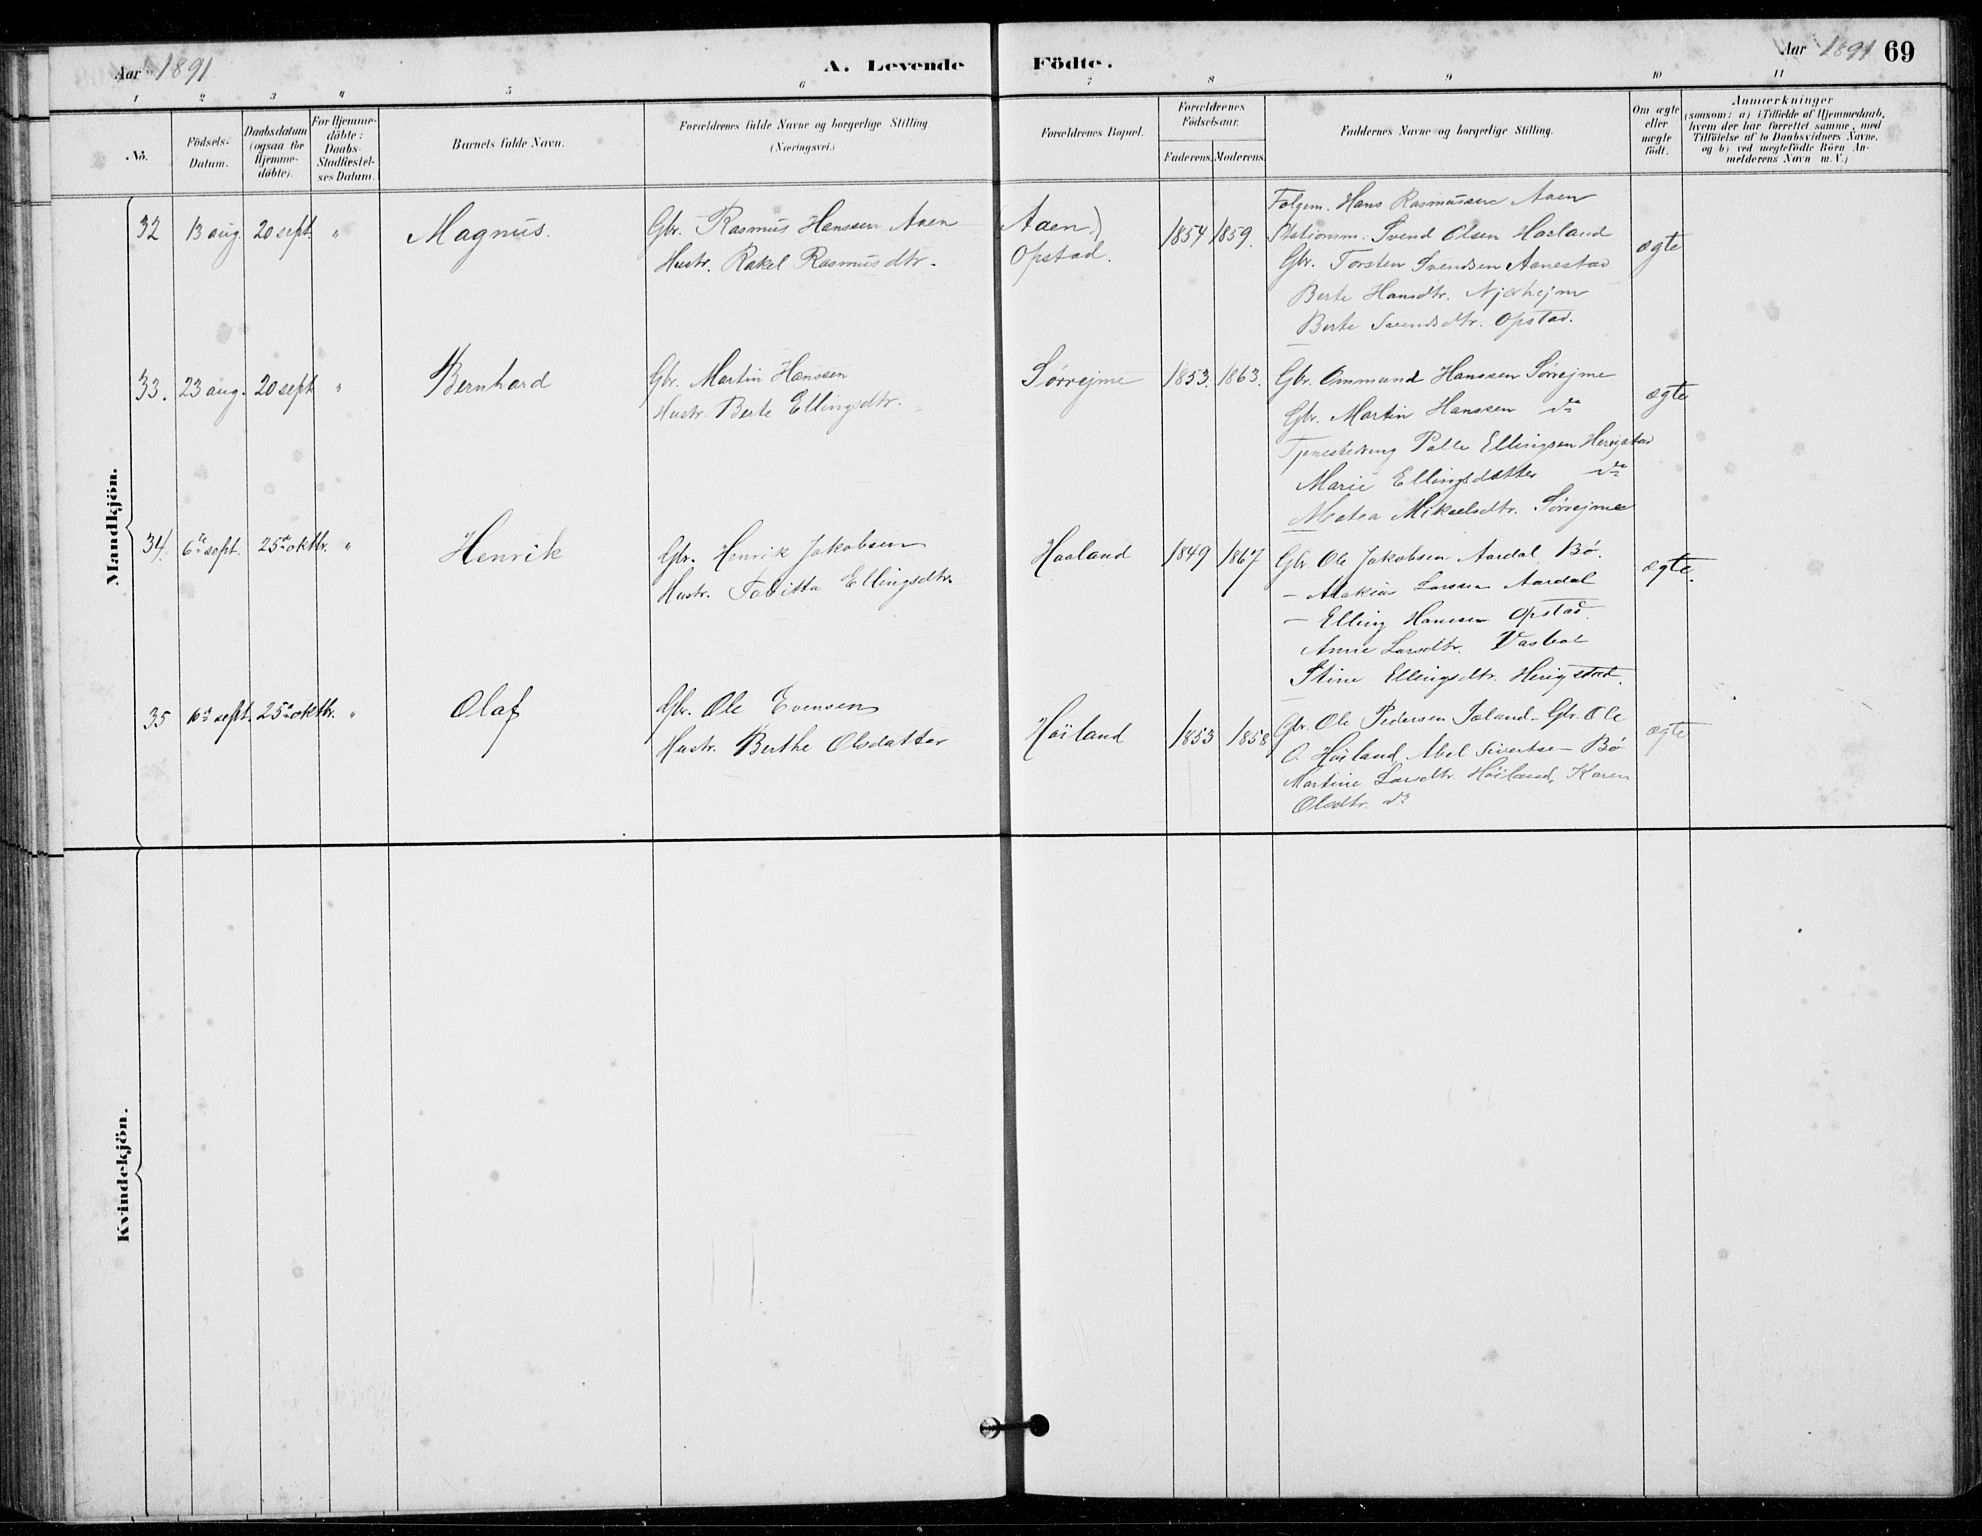 Aar 1891
A. Levende Födte.
Aar 1891 69
1 2 3 4 5 6 7 8 9 10 11
No.
Födsels-
Datum.
Daabsdatum
(ogsaa for
Hjemme-
döbte).
For Hjemme-
döbte:
Daabs-
Stadfæstel-
ses Datum.
Barnets fulde Navn.
Forældrenes fulde Navne og borgerlige Stilling
(Næringsvei.)
Forældrenes Bopæl.
Forældrenes
Födselsaar.
Faderens. Moderens.
Faddernes Navne og borgerlige Stilling.
Om ægte
eller
uægte
födt.
Anmærkninger
(saasom: a) i Tilfælde af Hjemmedaab,
hvem der har forrettet samme, med
Tilföielse af to Daabsvidners Navne,
og b) ved uægtefödte Börn An-
melderens Navn m. V.)
Mandkjön.
32 13 aug. 20 sept. " Magnus.
Gbr. Rasmus Hanssen Aaen
Hustr. Rakel Rasmusdtr.
Aaen)
Opstad.
1854 1859.
Følgem. Hans Rasmussen Aaen
Stationsm. Svend Olsen Haaland
Gbr. Torsten Svendsen Aanestad
Berte Hansdtr. Njærhejm
Berte Svendsdtr. Opstad.
ægte
33. 23 aug. 20 sept " Bernhard
Gbr. Martin Hanssen
Hustr. Berte Ellingsdtr.
Sørrejme 1853. 1863.
Gbr. Ommund Hanssen Sørrejme
Gbr. Martin Hanssen do
Tjenestedreng Palle Ellingsen Herigstad
Marie Ellingsdatter do
Matea Mikaelsdtr. Sørrejme
ægte
34. 6te sept. 25de oktbr. " Henrik
Gbr. Henrik Jakobsen
Hustr. Tobitta Ellingsdtr.
Haaland 1849 1867
Gbr Ole Jakobsen Aardal Bø.
— Larssen Aardal
— Elling Hanssen Opstad.
Anne Larsdtr.
Stine Ellingsdtr. Herigstad.
ægte.
35 10de sept. 25de oktbr. " Olaf
Gbr. Ole Evensen
Hustr. Berthe Olsdatter
Høiland 1853 1858
Gbr. Ole Pedersen Gbr. Ole
O. Høiland, Abel Sivertsen Bø
Martine Larsdtr. Høiland, Karen
Olsdtr. do
ægte
Kvindekjön.